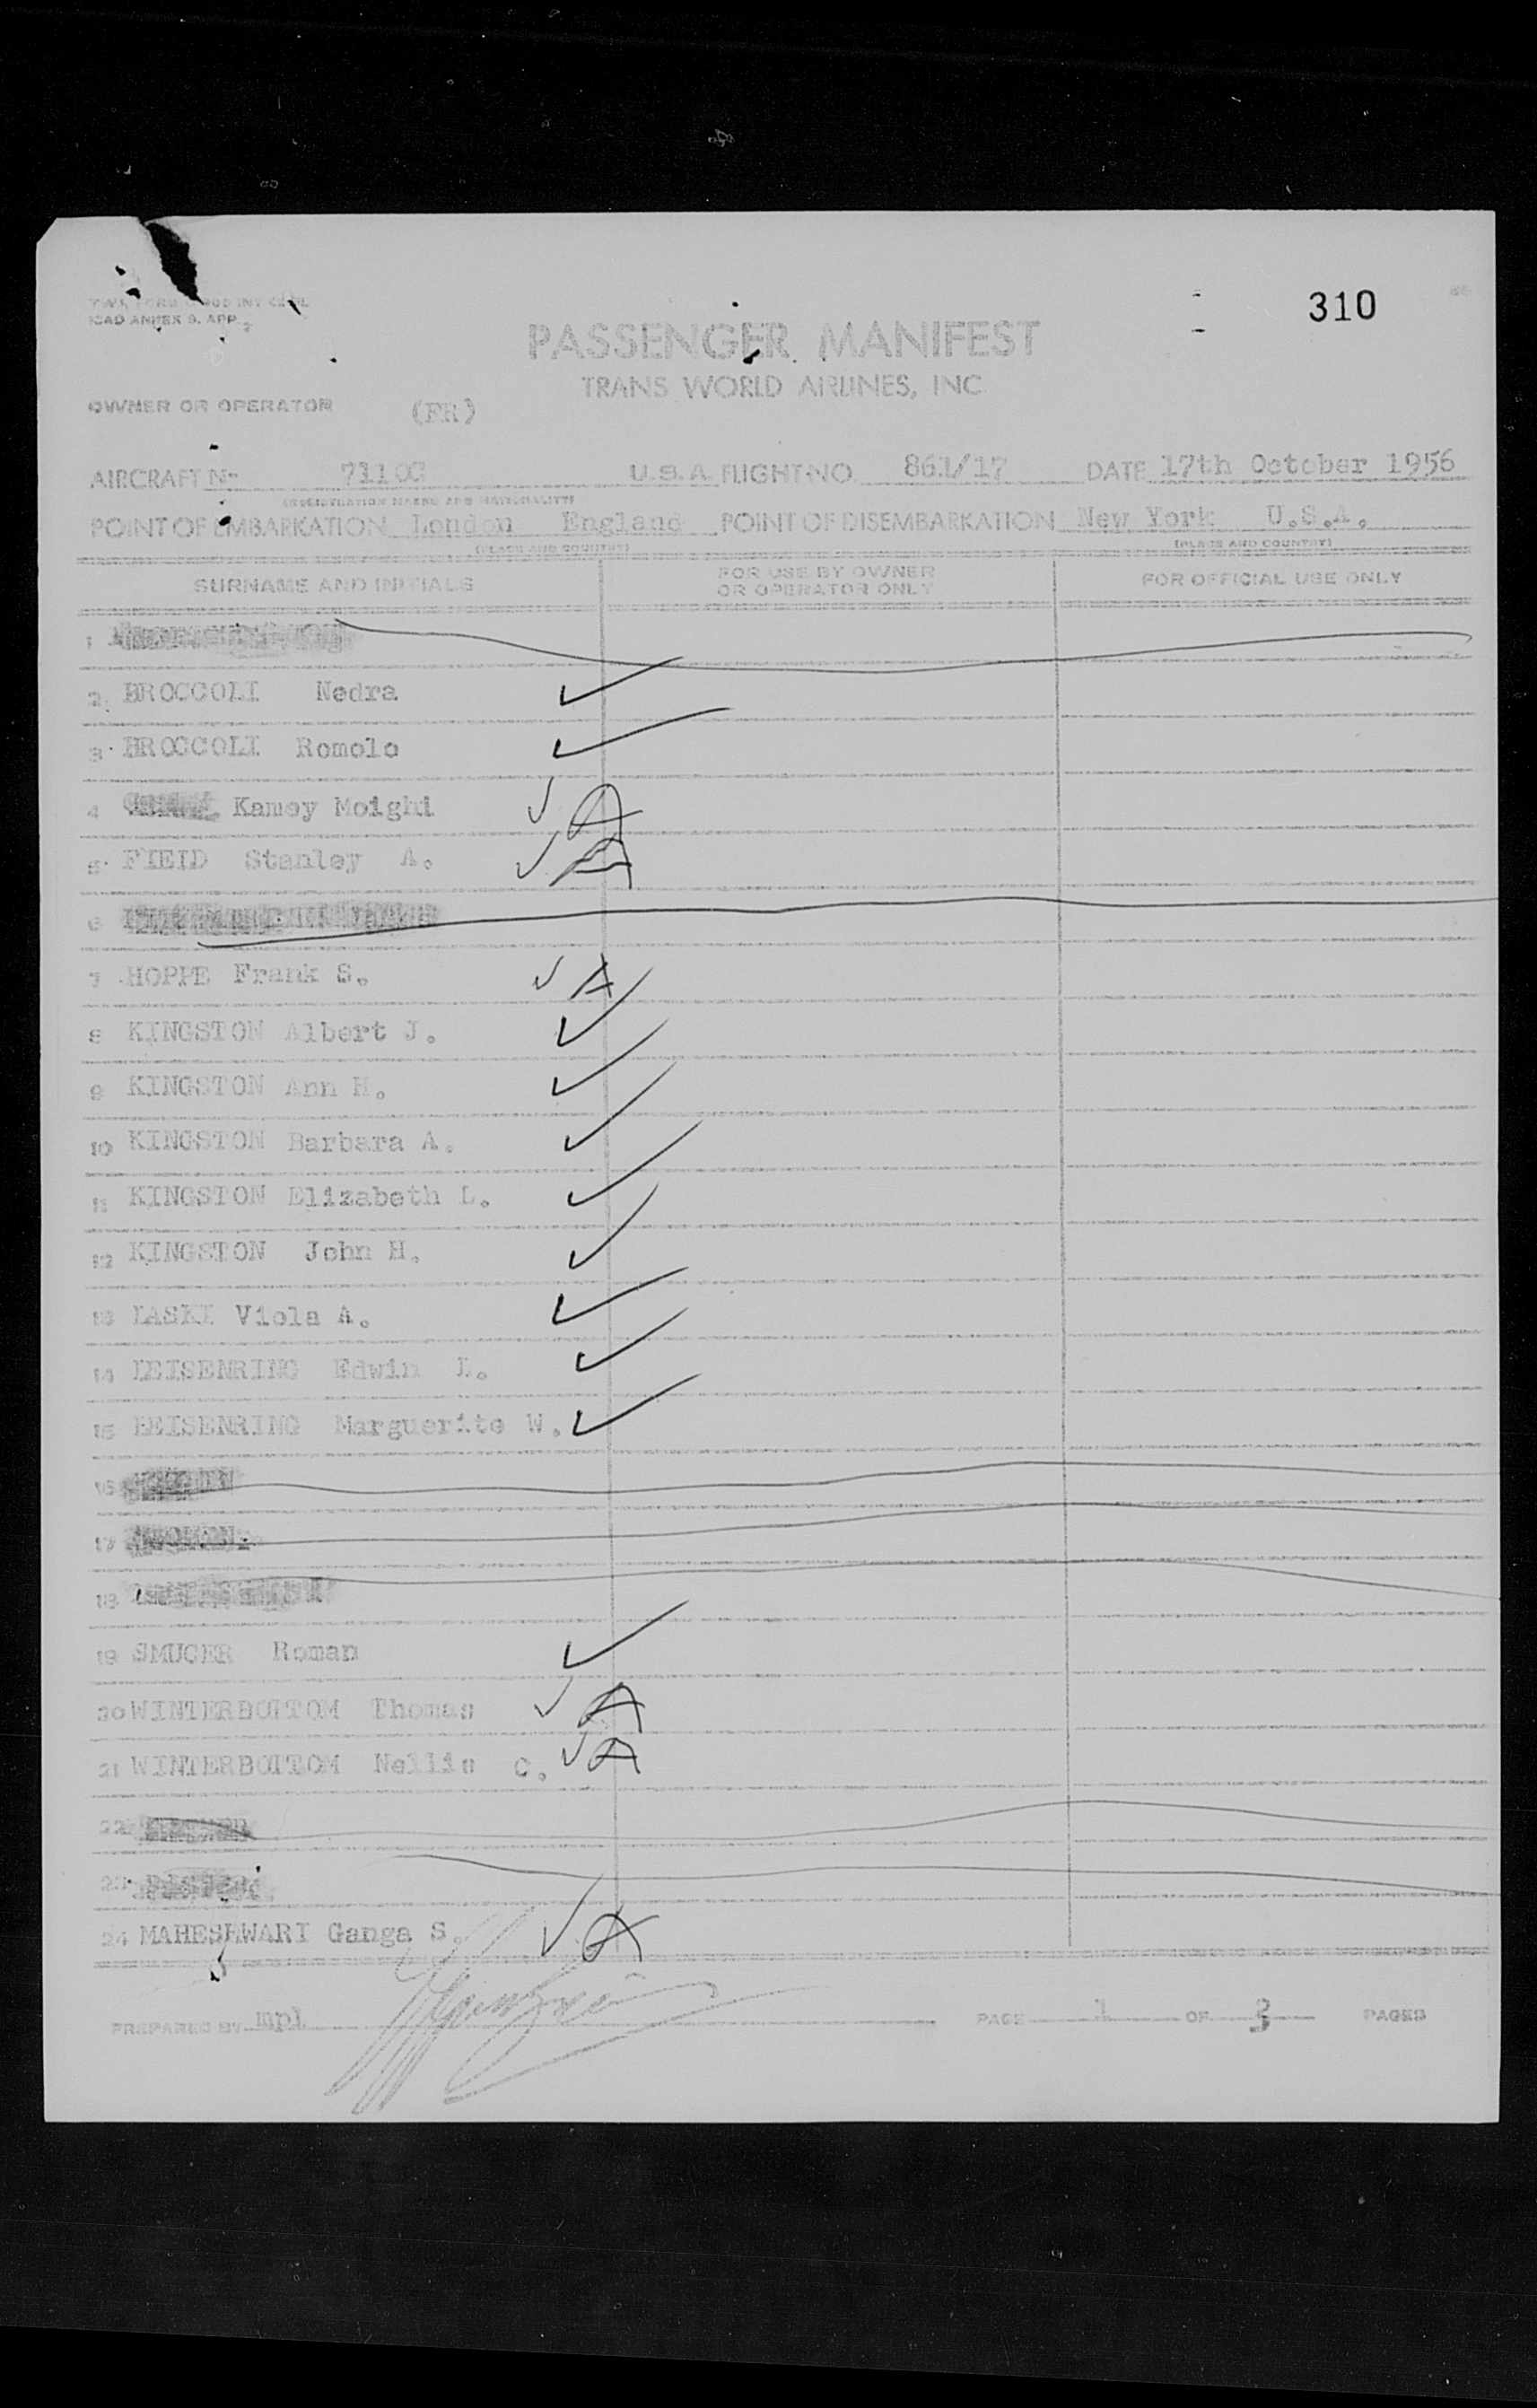 310
ICAO ANNEX 9. APP 2
PASSENGER MANIFEST
TRANS WORLD AIRLINES, INC
OWNER OR OPERATOR (FR)
AIRCRAFT No 7110C U.S.A. FLIGHT NO. 861/17 DATE 17th October 1956
(REGISTRATION MARKS AND NATIONALITY)
POINT OF EMBARKATION London England POINT OF DISEMBARKATION New York U.S.A.
(PLACE AND COUNTRY) (PLACE AND COUNTRY)
SURNAME AND INITIALS FOR USE BY OWNER OR OPERATOR ONLY FOR OFFICIAL USE ONLY
1
2 BROCCOLI Nedra ✓
3 BROCCOLI Romolo ✓
4 Kamey Moighi ✓ A
5 FIEID Stanley A. ✓ A
6
7 HOPPE Frank S. ✓ A
8 KINGSTON Albert J. ✓
9 KINGSTON Ann H. ✓
10 KINGSTON Barbara A. ✓
11 KINGSTON Elizabeth L. ✓
12 KINGSTON John H. ✓
13 LASKI Viola A. ✓
14 LEISENRING Edwin L. ✓
15 LEISENRING Marguerite W. ✓
16
17
18
19 SMUCER Roman ✓
20 WINTERBOTTOM Thomas ✓ A
21 WINTERBOTTOM Nellie C. ✓ A
22
23
24 MAHESHWARI Ganga S. ✓ A
PREPARED BY mpl PAGE 1 OF 3 PAGES